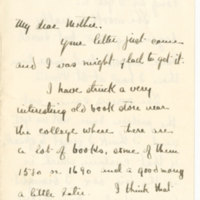 My dear Mother.
Your letter just came
and I was might glad to get it.
I have struck a very
interesting old book store near
the college where there are
a lot of books, some of them
1580 or 1690 and a good many
a little later. I think that